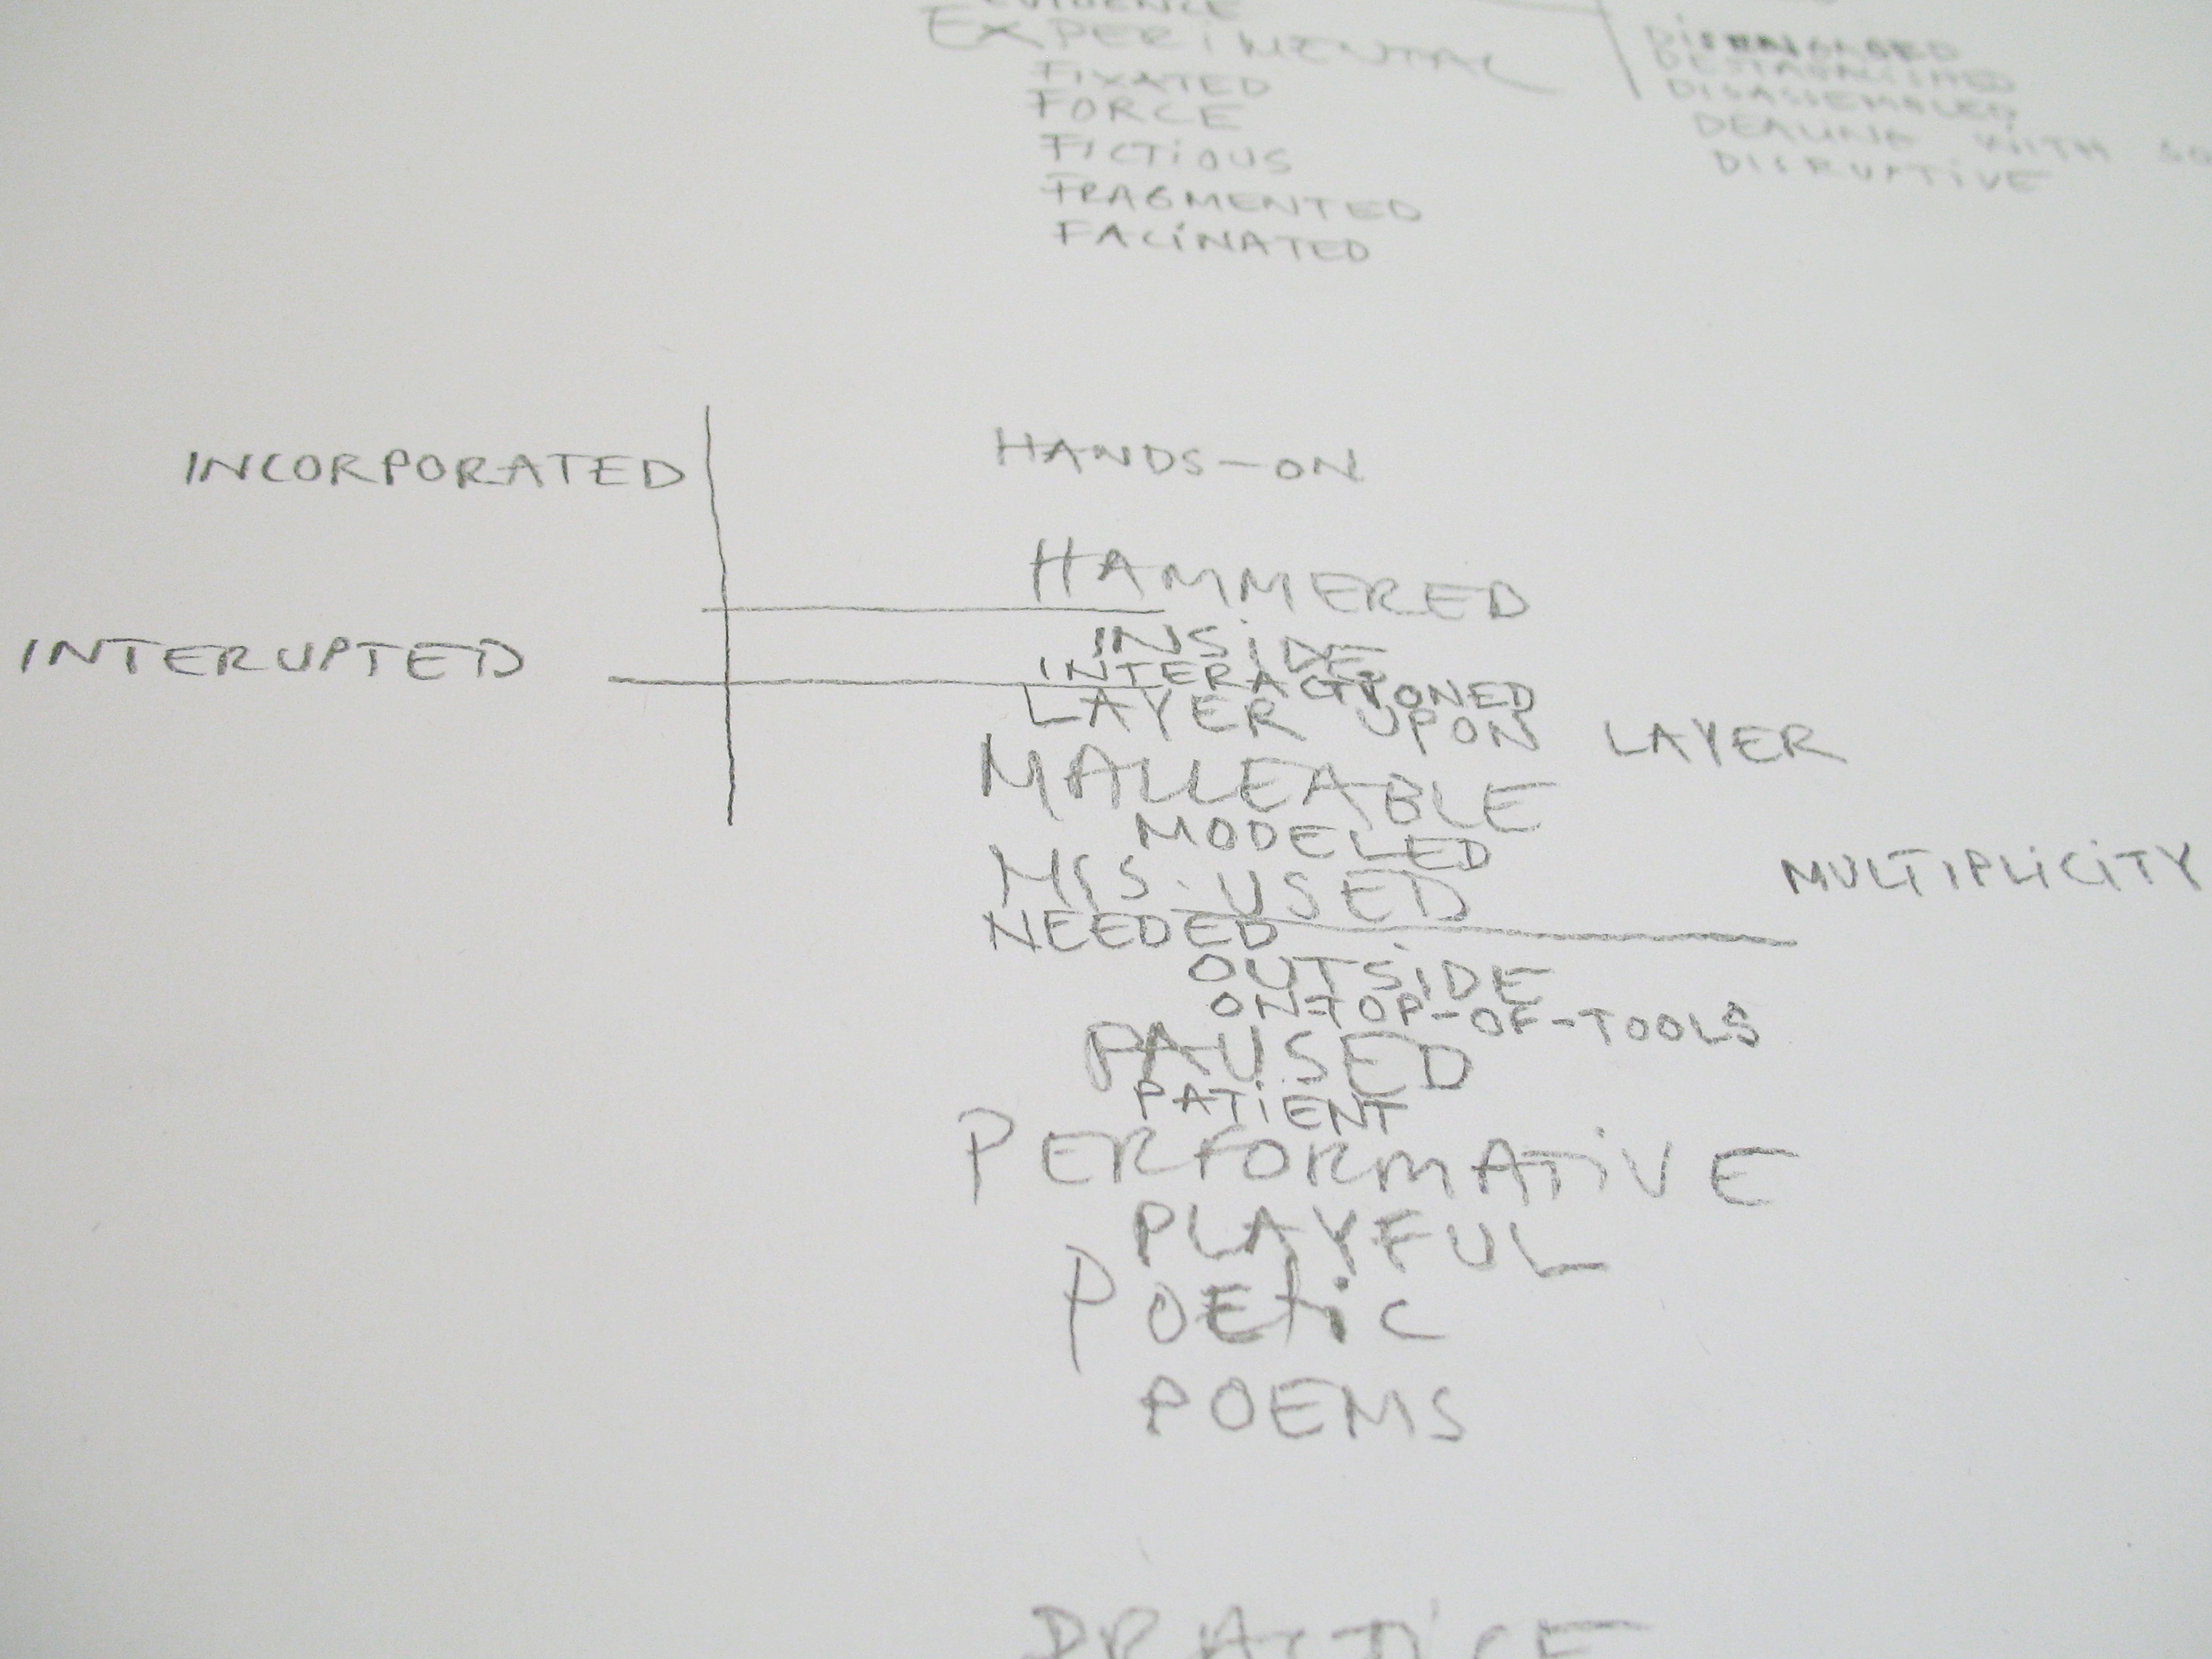 EVIDENCE
EXPERIMENTAL
FIXATED
FORCE
FICTIOUS
FRAGMENTED
FACINATED
DISASSEMBLED
DEALING WITH
DISRUPTIVE
INCORPORATED
INTERUPTED
HANDS-ON
HAMMERED
INSIDE
INTERACTIONED
LAYER UPON LAYER
MALLEABLE
MODELED
MIS-USED
MULTIPLICITY
NEEDED
OUTSIDE
ON-TOP-OF-TOOLS
PAUSED
PATIENT
PERFORMATIVE
PLAYFUL
POETIC
POEMS
PRACTICE